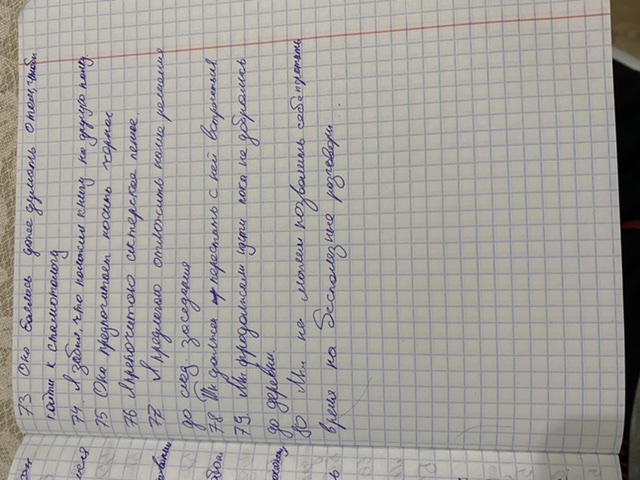 73 Она боялась даже думать о том, чтобы
пойти к стоматологу
74. Я забыл, что положил книгу на другую полку.
75 Она предпочитает носить чёрное
76 Я предпочитаю актерское пение
77 Я предлагаю отложить наше решение
до след заседания
78 Ты должен перестать с ней встречаться
79. Мы продолжали идти пока не добрались
до деревни.
80 Мы не можем позволить себе тратить
время на бесполезные разговоры.